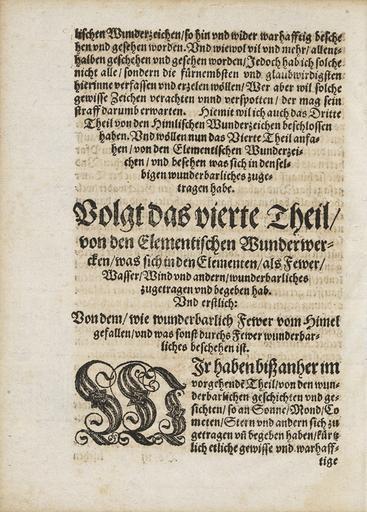 lischen Wunderzeichen/so hin vnd wider warhafftig besche
hen vnd gesehen worden. Vnd wiewol vil vnd mehr/allent-
halben geschehen vnd gesehen worden/Jedoch hab ich solche
nicht alle/sondern die fürnembsten vnd glaubwirdigsten
hierinne verfassen vnd erzelen wöllen/Wer aber wil solche
gewisse Zeichen verachten vnnd verspotten/der mag sein
straff darumb erwarten. Hiemit wil ich auch das Dritte
Theil von den Himlischen Wunderzeichen beschlossen
haben. Vnd wöllen nun das Vierte Theil anfa-
hen/von den Elementischen Wunderzei-
chen/vnd besehen was sich in densel-
bigen wunderbarliches zuge-
tragen habe.
Volgt das vierte Theil/
von den Elementischen Wunderwer-
cken/was sich in den Elementen/als Fewer/
Wasser/Wind vnd andern/wunderbarliches
zugetragen vnd begeben hab.
Vnd erstlich:
Von dem/wie wunderbarlich Fewer vom Himel
gefallen/vnd was sonst durchs Fewer wunderbar-
liches beschehen ist.
WIr haben bißanher im
vorgehende Theil/von den wun-
derbarlichen geschichten vnd ge-
sichten/so an Sonne/Mond/Co
meten/Stern vnd andern sich zu
getragen vñ begeben haben/kürtz
lich etliche gewisse vnd warhaff-
tige